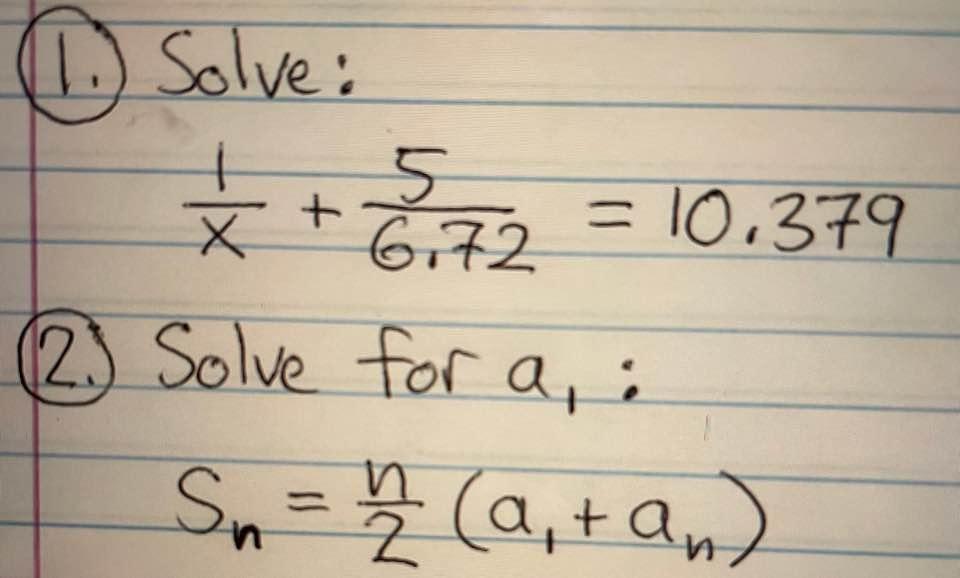 1. Solve:
1/x + 5/6.72 = 10.379
2. Solve for a₁:
Sₙ = n/2 (a₁ + aₙ)